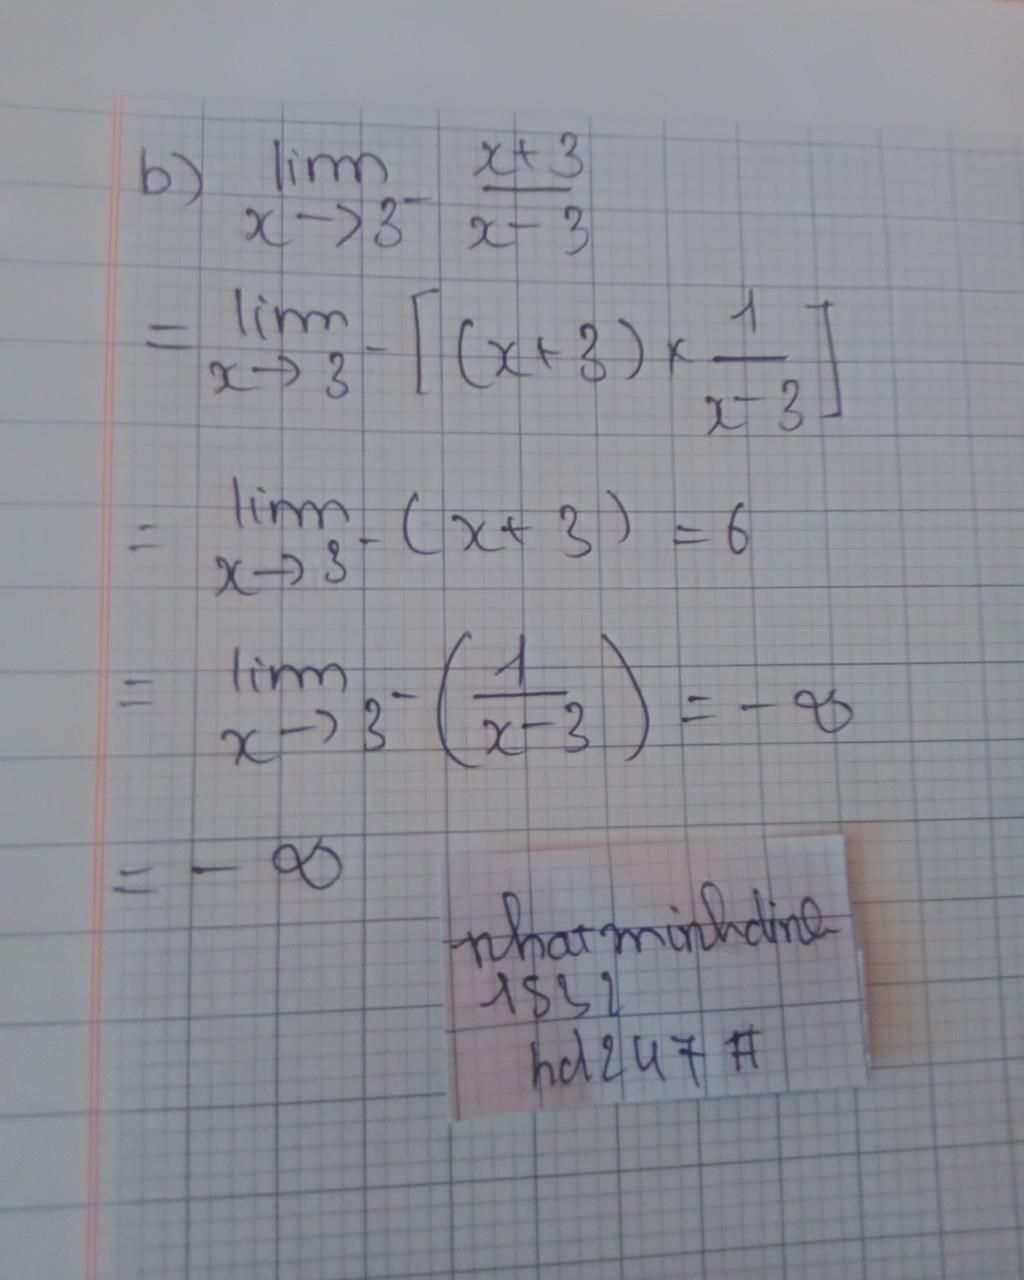 b) lim x→3⁻ x+3/x-3
= lim x→3⁻ [(x+3) × 1/x-3]
= lim x→3⁻ (x+3) = 6
= lim x→3⁻ (1/x-3) = -∞
= -∞
nhatminhdine
1832
hd247 #